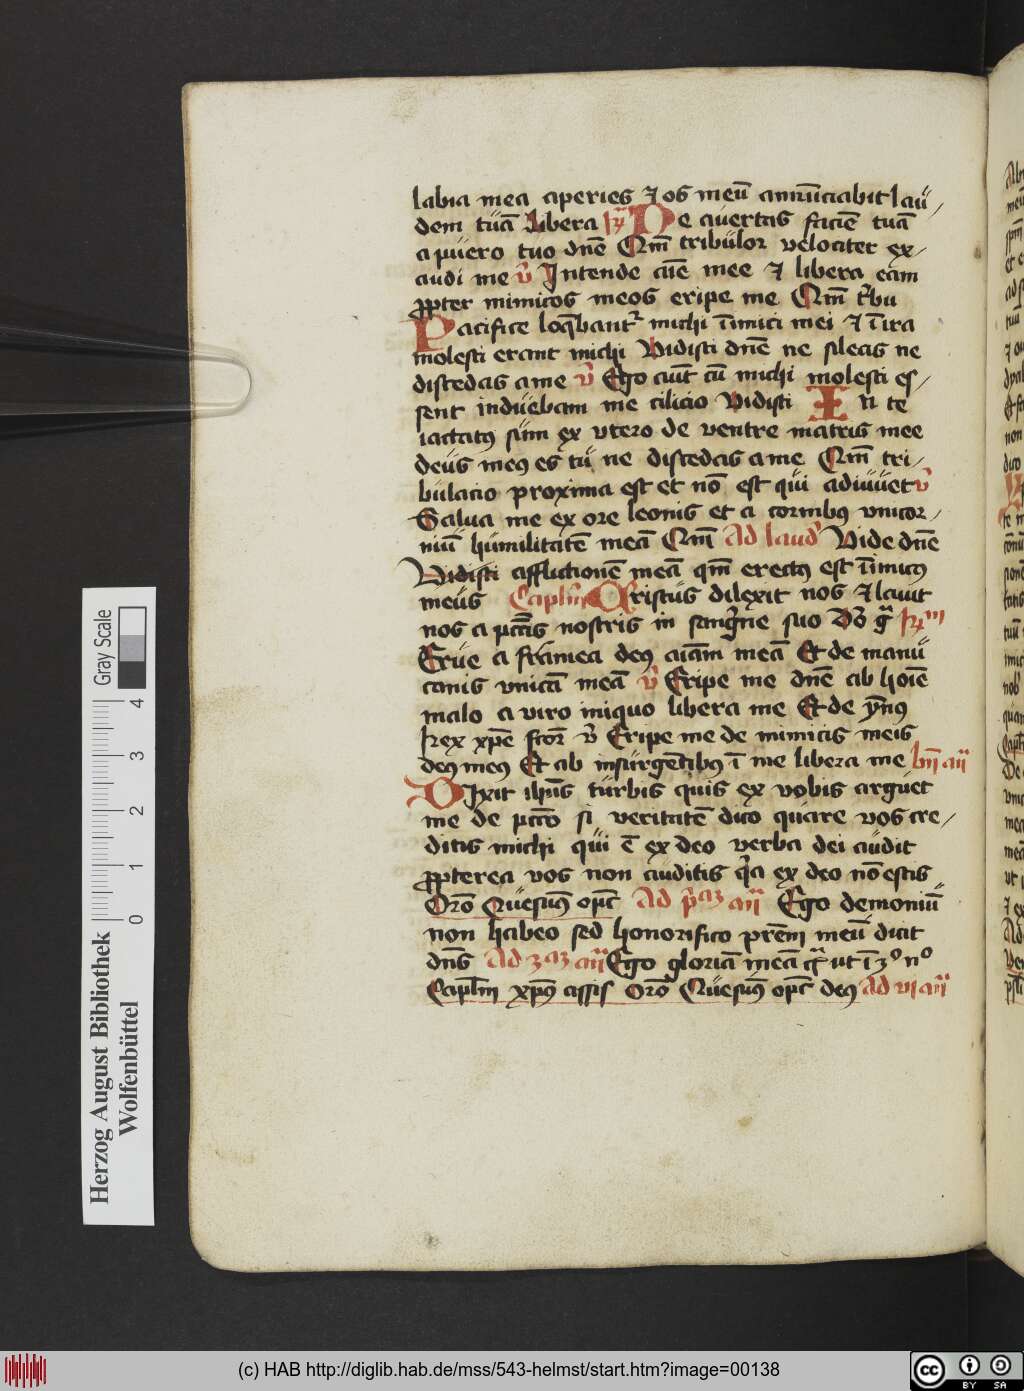 labia mea aperies ⁊ os meū annūciabit lau/
dem tuā Libera R̄ Ne auertas faciē tuā
a puero tuo dn̄e Qm̄ tribulor velociter ex/
audi me v̄ Intende aīe mee ⁊ libera eam
ꝓpter inimicos meos eripe me Qm̄ t'bu
Pacifice loq̄bantr michi īimici mei ⁊ ī ira
molesti erant michi Vidisti dn̄e ne sileas ne
discedas a me v̄ Ego aūt cū michi molesti es/
sent induebam me cilicio Vidisti In te
iactatus sum ex vtero de ventre matris mee
deus meꝰ es tu ne discedas a me Qm̄ tri/
bulacio proxima est et nō est qui adiuuet v̄
Salua me ex ore leonis et a cornibꝰ vnicor/
niū humilitatē meā Qm̄ Ad laud' Vide dn̄e
Vidisti afflictionē meā qm̄ erectꝰ est īimicꝰ
meus Caplm̄ Cristus dilexit nos ⁊ lauit
nos a pctīs nostris in sangine suo Dō grā R̄m
Erue a framea deꝰ aīam meā Et de manu
canis vnicā meā v̄ Eripe me dn̄e ab hoīe
malo a viro iniquo libera me Et de ymꝰ
Rex xp̄e fcōr v̄ Eripe me de inimicis meis
deꝰ meꝰ Et ab insurgētibꝰ ī me libera me bn̄ añ
Dixit ihūs turbis quis ex vobis arguet
me de pctō si veritatē dico quare vos cre/
ditis michi qui ē ex deo verba dei audit
ꝓpterea vos non auditis q̄a ex deo nō estis
Orō Quesumꝰ opt̄ Ad p̄am añ Ego demoniū
non habeo sed honorifico prēm meū dicit
dn̄s Ad 3am añ Ego gloriā meā q̄r ut ī 3o no
Caplm̄ xp̄ꝰ assis Orō Quesumꝰ opt̄ deꝰ Ad vi añ
Herzog August Bibliothek
Wolfenbüttel
Gray Scale
0 1 2 3 4
(c) HAB http://diglib.hab.de/mss/543-helmst/start.htm?image=00138
cc BY SA